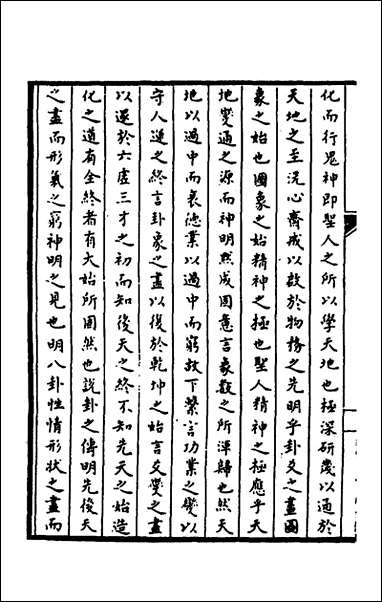 化而行鬼神即聖人之所以學天地也極深研幾以通於
天地之至洗心齋戒以啟於物掾之先明乎卦爻之畫圖
象之始也圖象之始精神之極也聖人精神之極應乎天
地變通之源而神明熙成圖意言象數之所渾歸也然天
地以過中而衰德業以過中而窮故下繫言功業之變以
守人道之終言卦象之盡以復於乾坤之始言爻變之盡
以遂於六虛三才之初而知後天之終不知先天之始造
化之道有全終者有大始所固然也說卦之傳明先後天
之盡而形氣之窮神明之見也明八卦性情形狀之盡而